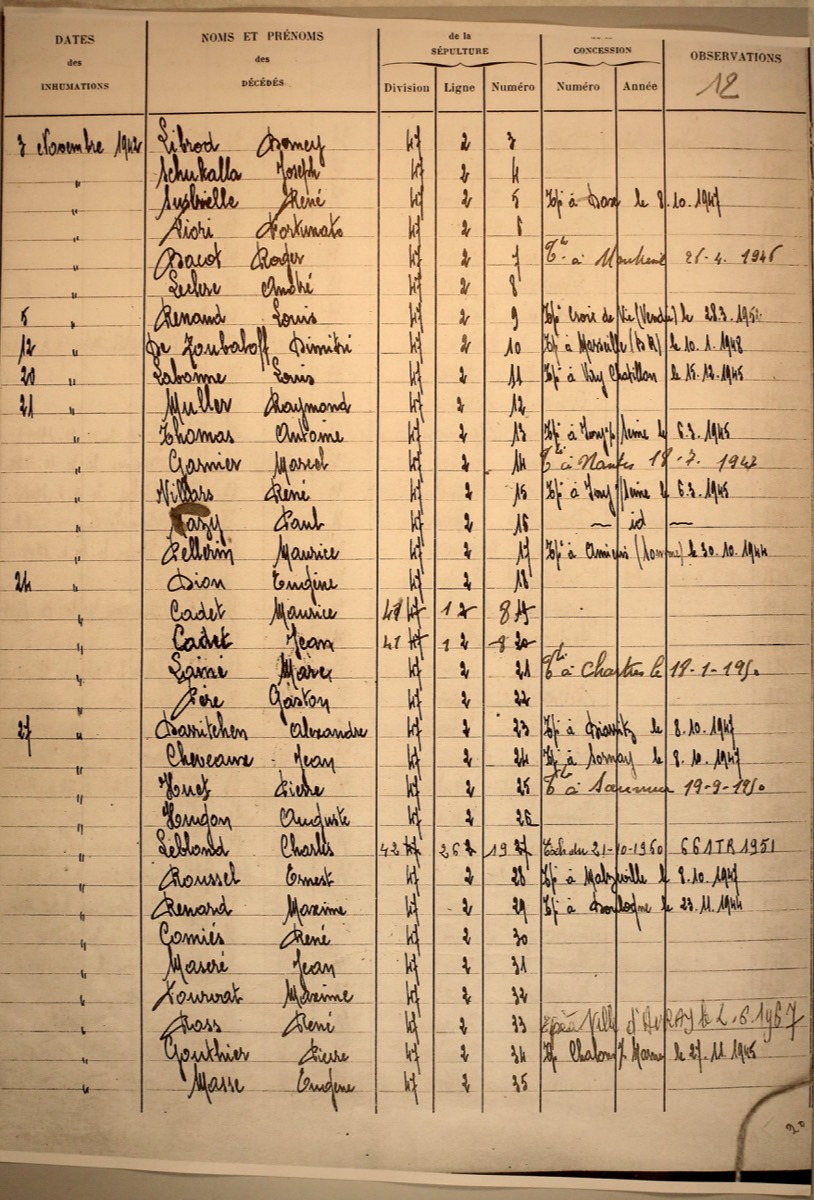 DATES des INHUMATIONS
NOMS ET PRÉNOMS des DÉCÉDÉS
de la SÉPULTURE
CONCESSION
OBSERVATIONS
12
Division Ligne Numéro Numéro Année
3 Novembre 1942 Librod 47 2 3
" Schukalla Joseph 47 2 4
" René 47 2 5 Tpé à Dax le 8.10.1947
" Fiori Fortunato 47 2 6
" Bacot Roger 47 2 7 à 1946
" Leclerc André 47 2 8
5 " Renaud Louis 47 2 9 Tpé Croix de Vie (Vendée) le
12 " De Zoubaloff Dimitri 47 2 10 Tpé à Marseille (B R) le 10.1.1948
20 " Labonne Louis 47 2 11 Tpé à Viry Chatillon le 15.12.1945
21 " Muller Raymond 47 2 12
" Thomas Antoine 47 2 13 Tpé à Seine le 6.3.1945
" Garnier Marcel 47 2 14 à Nantes 18-7.
" Villars René 47 2 15 Tpé à Seine le 6.3.1945
" Paul 47 2 16 — id —
" Pellerin Maurice 47 2 17 Tpé à Amiens (Somme) le 30.10.1944
24 " Dion Eugène 47 2 18
" Cadet Maurice 41 47 1 2 8 19
" Cadet Jean 41 47 1 2 8 20
" Lainé Marc 47 2 21 à Chartres le 18-1-1950
" Père Gaston 47 2 22
27 " Alexandre 47 2 23 Tpé à Biarritz le 8.10.1947
" Cheveaux Jean 47 2 24 Tpé à le 8.10.1947
" Huet Pierre 47 2 25 à Saumur 19-9-1950
" Houdon Auguste 47 2 26
" Leblond Charles 42 47 26 2 19 27 Ech du 21-10-1960 661TR1951
" Roussel Ernest 47 2 28 Tpé à Malzéville le 8.10.1947
" Renard Maxime 47 2 29 Tpé à Boulogne le 23.11.1944
" Comiés René 47 2 30
" Mascré Jean 47 2 31
" Maxime 47 2 32
" Ross René 47 2 33 à Ville d'AVRAY le 2.6.1967
" Gauthier Pierre 47 2 34 Tpé Chalons s/ Marne le 27.11.1945
" Masse Eugène 47 2 35
20